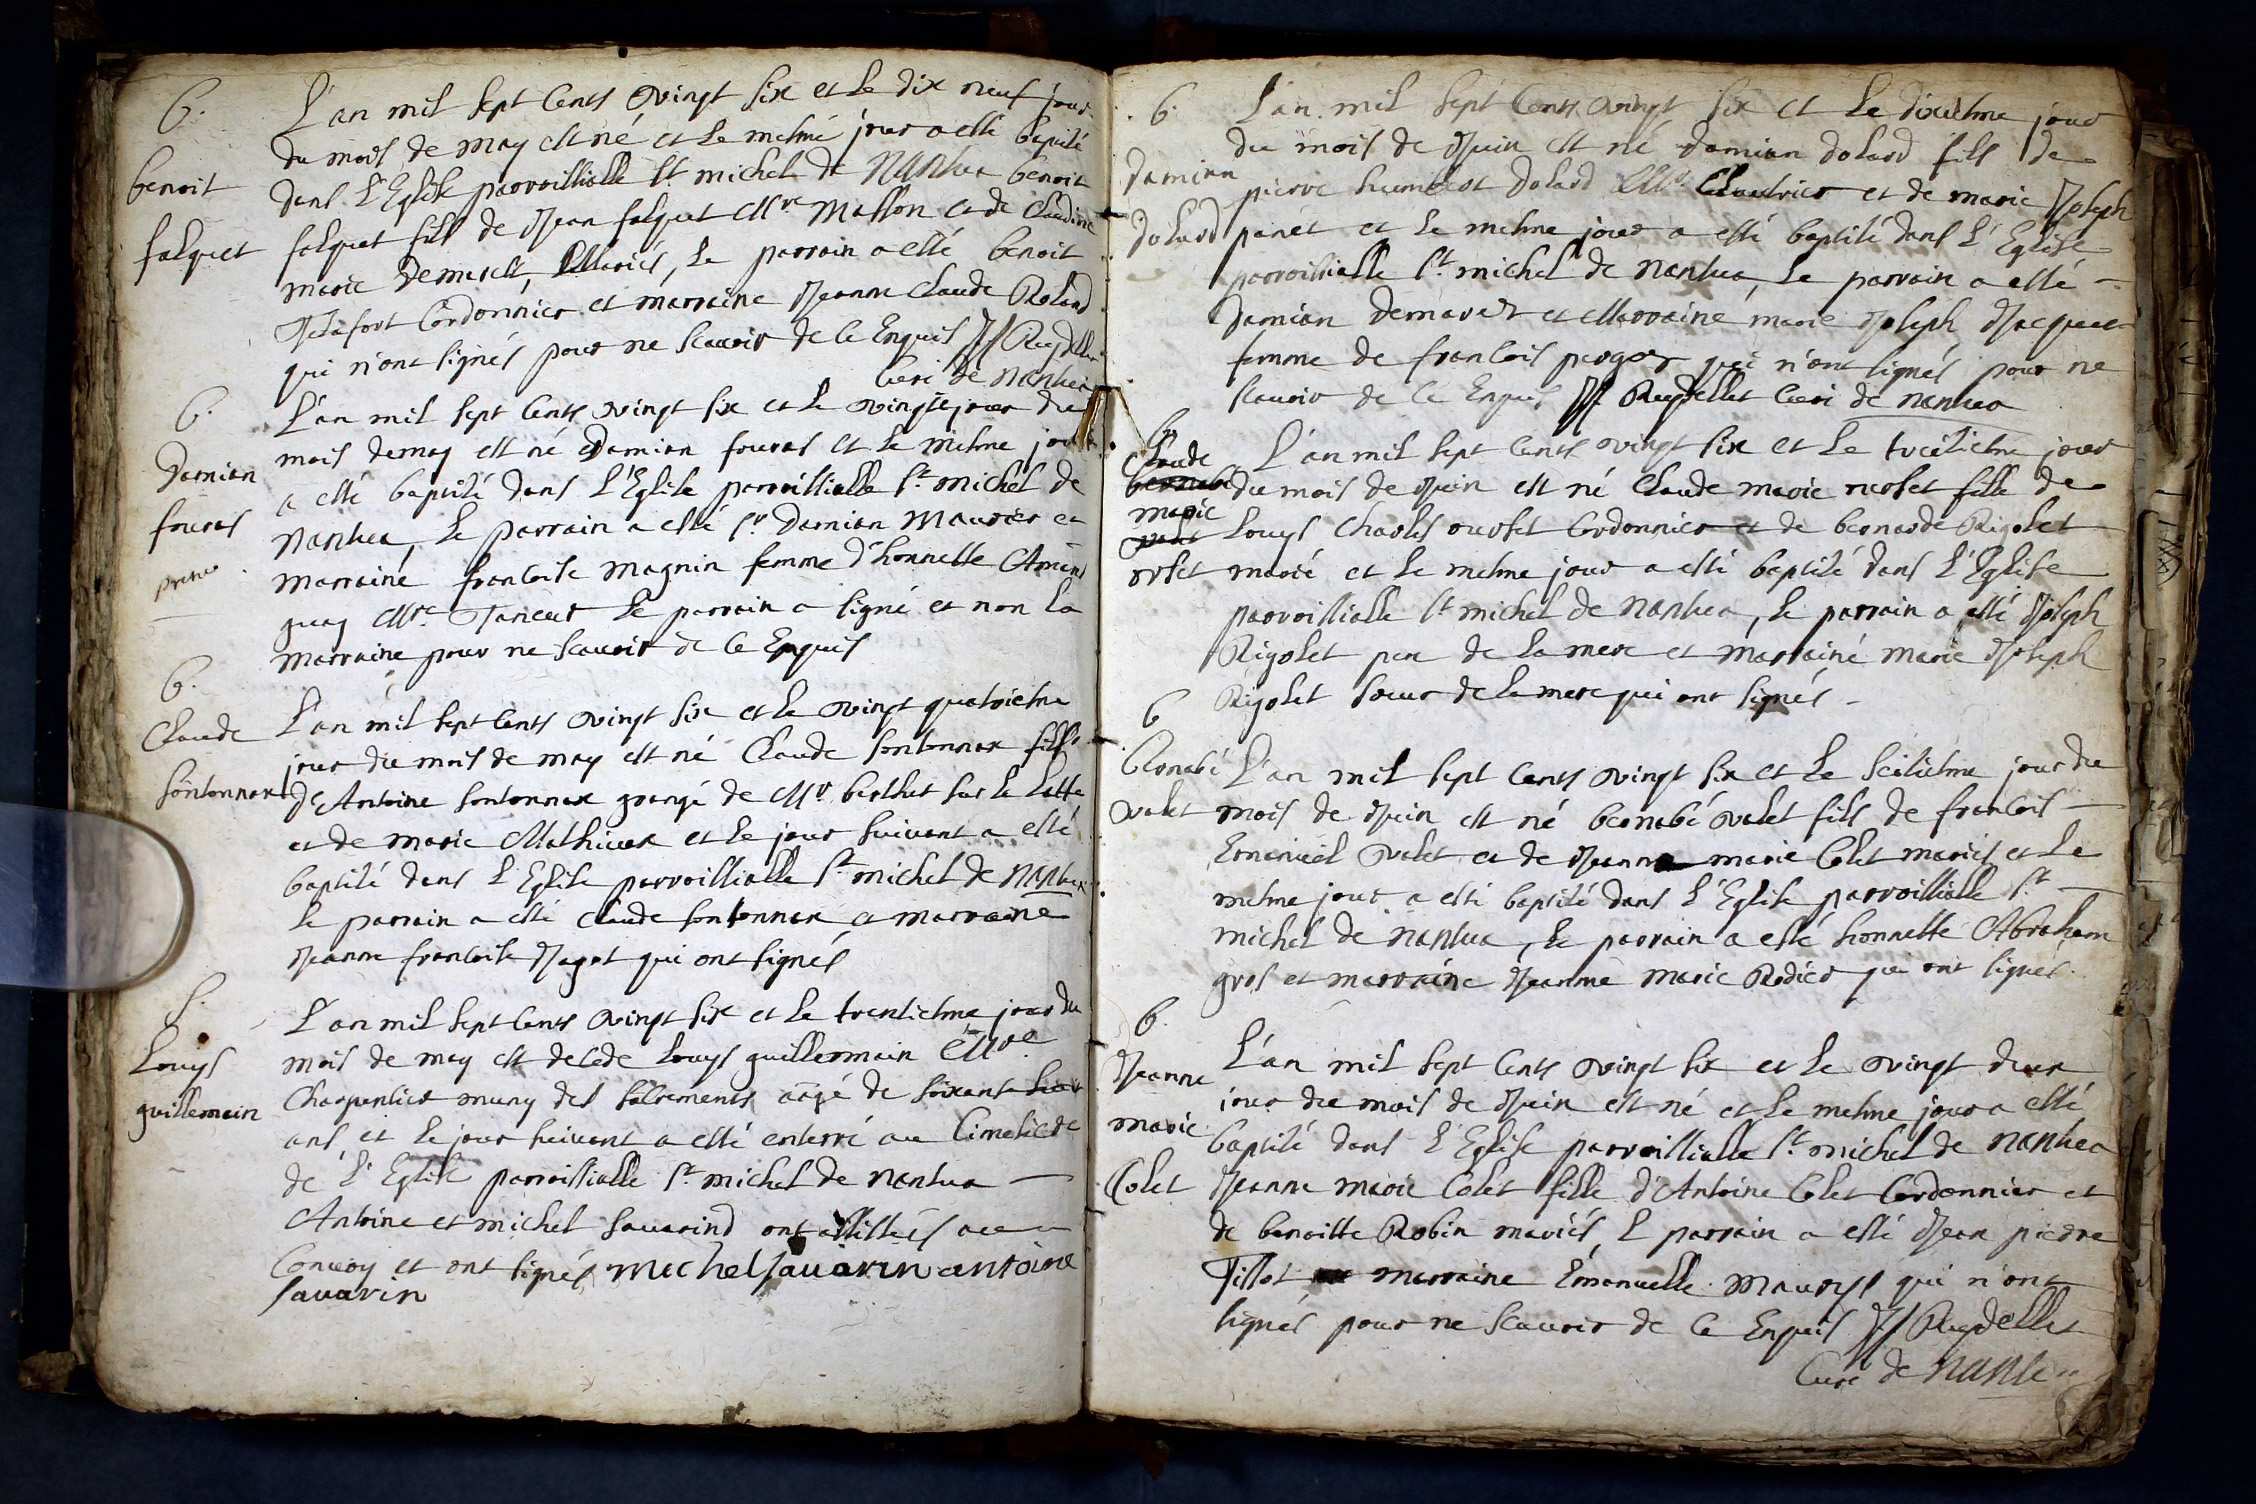 b.
benoit
falquet
L'an mil sept Cents vingt six et le dix neuf jour
du mois de may est né et le mesme jour a esté baptisé
dans l'Eglise parroissialle St michel de Nantua benoit
falquet fils de Jean falquet Mre Masson et de Claudine
marie Demarest, Mariés, Le parrain a esté benoit
Cordonnier et marraine Jeanne Claude Roland
qui n'ont signés pour ne scauoir de ce Enquis JJ Reydellet
Curé de Nantua
b.
Damian
fouras
L'an mil sept Cents vingt six et le vingte jour du
mois de may est né Damian fouras et le mesme jour
a esté baptisé dans l'Eglise parroissialle St michel de
Nantua, Le parrain a esté Sr Damian Maurier et
marraine francoise magnin femme d'honnette
guay Mre Taneur Le parrain a signé et non la
marraine pour ne scauoir de ce Enquis
b.
Claude
sontonnax
L'an mil sept Cents vingt six et le vingt quatriesme
jour du mois de may est né Claude sontonnax fils
d'Antoine sontonnax grangé de Mr berthet sur le Latte
et de marie Mathieux et le jour suivant a esté
baptisé dans l'Eglise parroissialle St michel de Nantua
le parrain a esté Claude sontonnax et marraine
Jeanne francoise Jagot qui ont signés
S.
Louys
guillermain
L'an mil sept Cents vingt six et le trentiesme jour du
mois de may est decede Louys guillermain Mre
Charpentier muny des sacrements aagé de soixante
ans et le jour suivant a esté enterré au Cimetiere
de l'Eglise parroissialle St michel de Nantua
Antoine et michel sauarind ont assistés au
Conuoy et ont signés michel sauarin antoine
sauarin
b.
Damian
Dolard
L'an mil sept Cents vingt six et le dixiesme jour
du mois de Juin est né Damian dolard fils de
pierre humbert dolard et de marie Joseph
panet et le mesme jour a esté baptisé dans l'Eglise
parroissialle St michel de Nantua, Le parrain a esté
Damian Demarest et Marraine marie Joseph Jacquet
femme de francois qui n'ont signés pour ne
scauoir de ce Enquis JJ Reydellet Curé de Nantua
b
Claude
bernabé
marie
valet
orset
L'an mil sept Cents vingt six et le treiziesme jour
du mois de Juin est né Claude marie orset fille de
Louys Charles orset Cordonnier et de bernarde Rigolet
marié et le mesme jour a esté baptisé dans l'Eglise
parroissialle St michel de Nantua, le parrain a esté Joseph
Rigolet pere de la mere et marrainé marie Joseph
Rigolet soeur de la mere qui ont signés
b
bernabé
valet
L'an mil sept Cents vingt six et le seiziesme jour du
mois de Juin est né bernabé valet fils de francois
Emanuel valet et de Jeanne marie Colet mariés et le
mesme jour a esté baptisé dans l'Eglise parroissialle St
michel de Nantua, Le parrain a esté honnette Abraham
gros et marraine Jeanne Marie Rodier qui ont signés
b.
Jeanne
marie
Colet
L'an mil sept Cents vingt six et le vingt deux
jour du mois de Juin est né et le mesme jour a esté
baptisé dans l'Eglise parroissialle St michel de Nantua
Jeanne marie Colet fille d'Antoine Colet Cordonnier et
de benoitte Robin mariés, L parrain a esté Jean pierre
Tillet marraine Emanuelle Maurys qui n'ont
signés pour ne scauoir de ce Enquis JJ Reydellet
Curé de Nantua